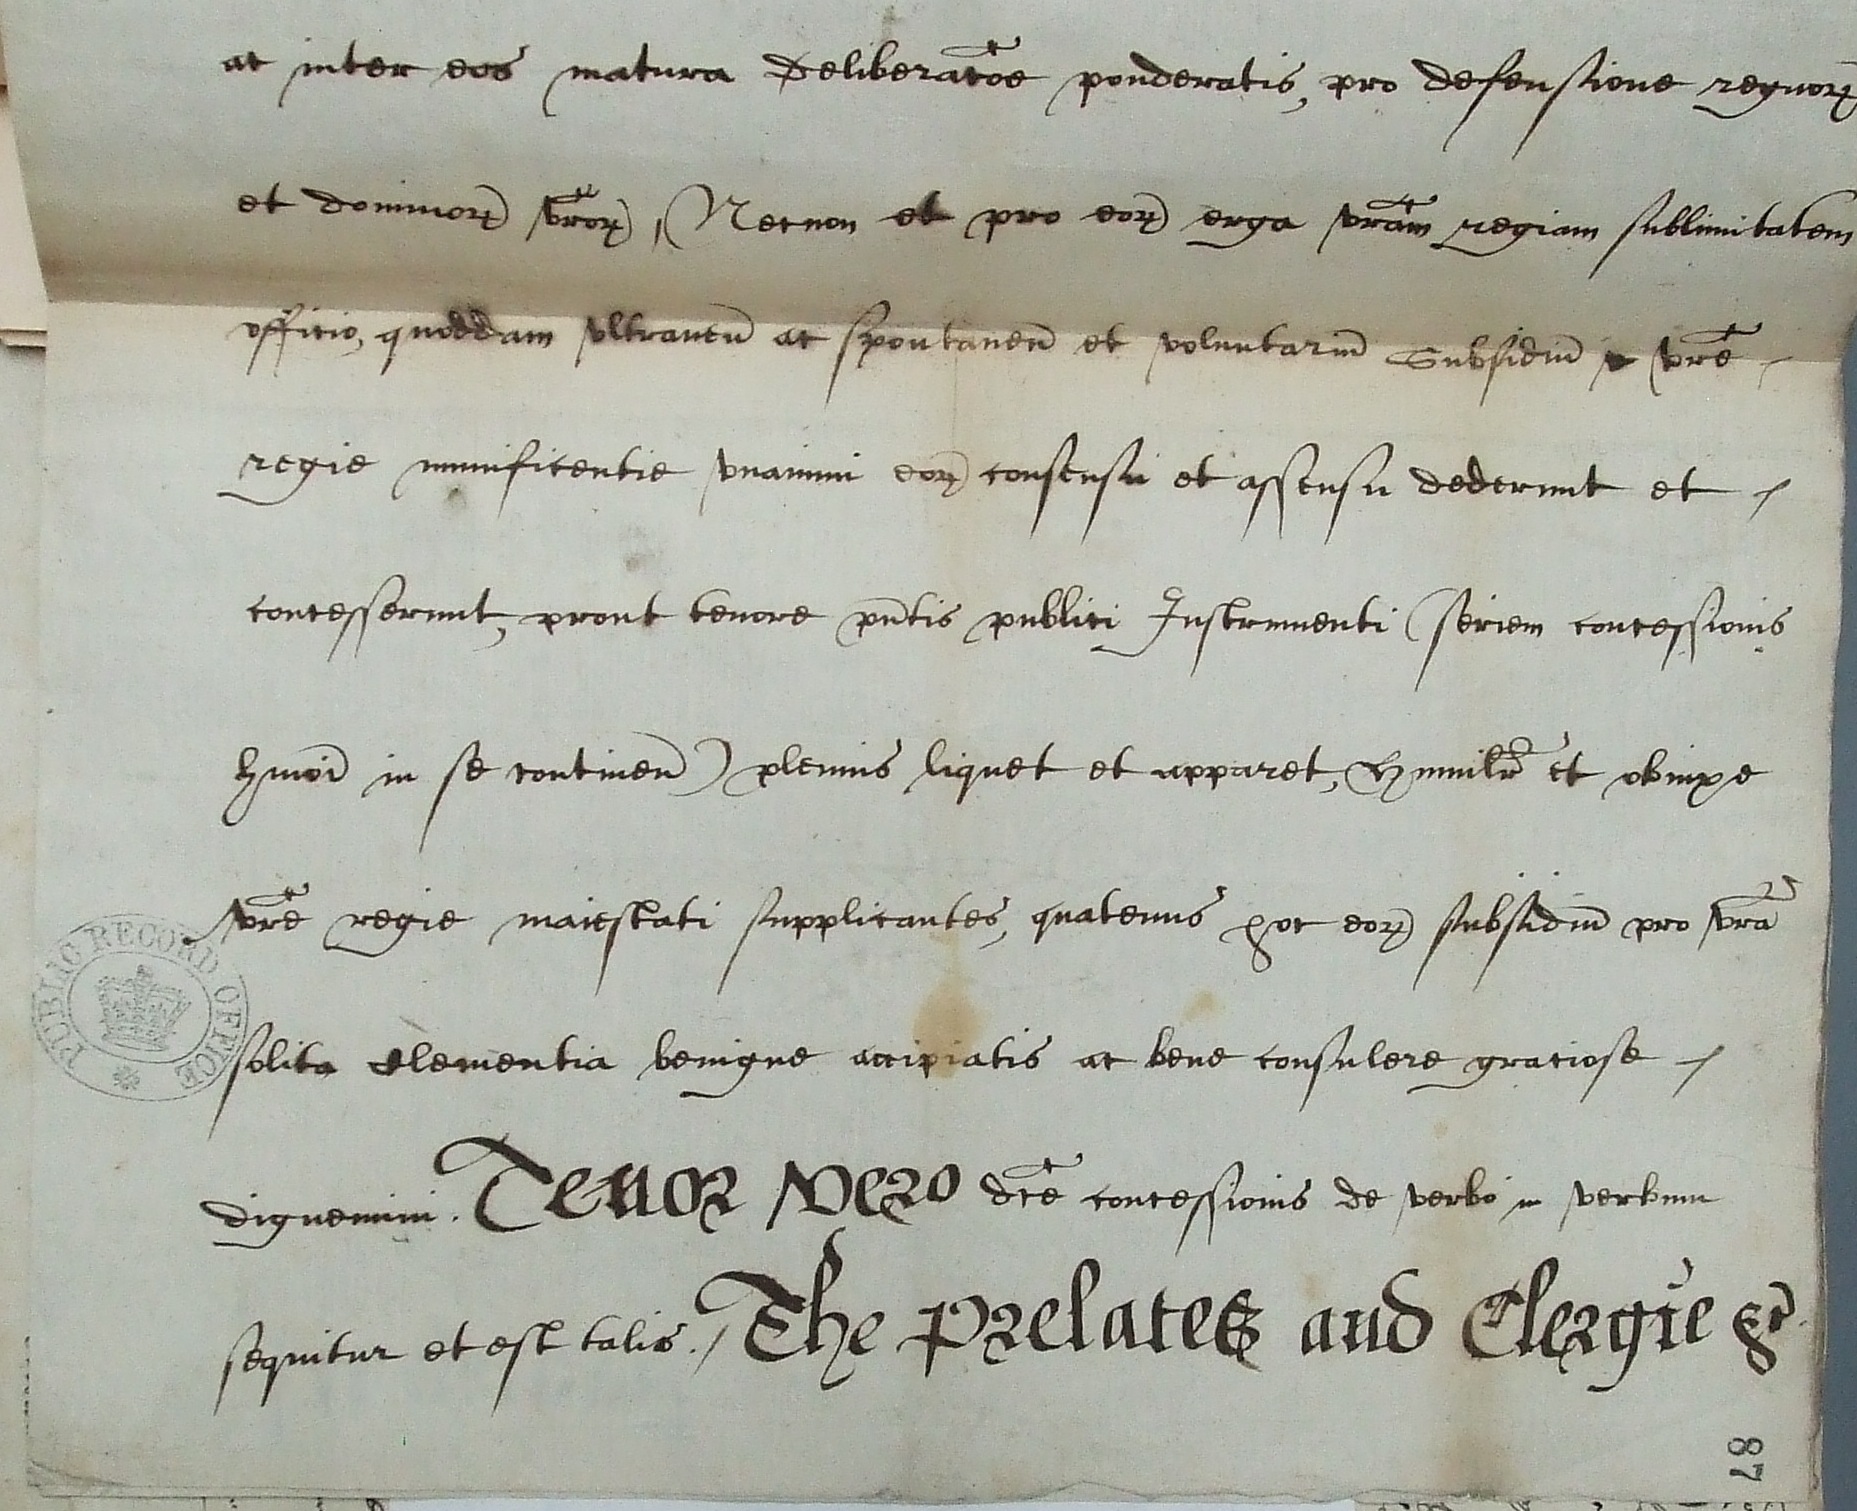 ac inter eos matura deliberac̄oe ponderatis, pro defensione regnorꝝ
et dominiorꝝ vr̄orꝝ, Necnon et pro eorꝝ erga vr̄am regiam sublimitatem
officio, quoddam vltraneū ac spontaneū et voluntariū Subsidiū vr̄e
regie munificentie vnanimi eorꝝ consensu et assensu dederunt et
concesserunt, prout tenore pn̄tis publici Instrumenti (seriem concessionis
hmōi in se continen̄) plenius liquet et apparet, Humilr̄ et obnixe
vr̄e regie maiestati supplicantes, quatenus hoc eorꝝ subsidiū pro vr̄a
solita clementia benigne accipiatis ac bene consulere graciose
dignemini. Tenor vero dc̄e concessionis de verbo in verbum
sequitur et est talis. / The Prelates and Clergie &c.
PUBLIC RECORD OFFICE
87